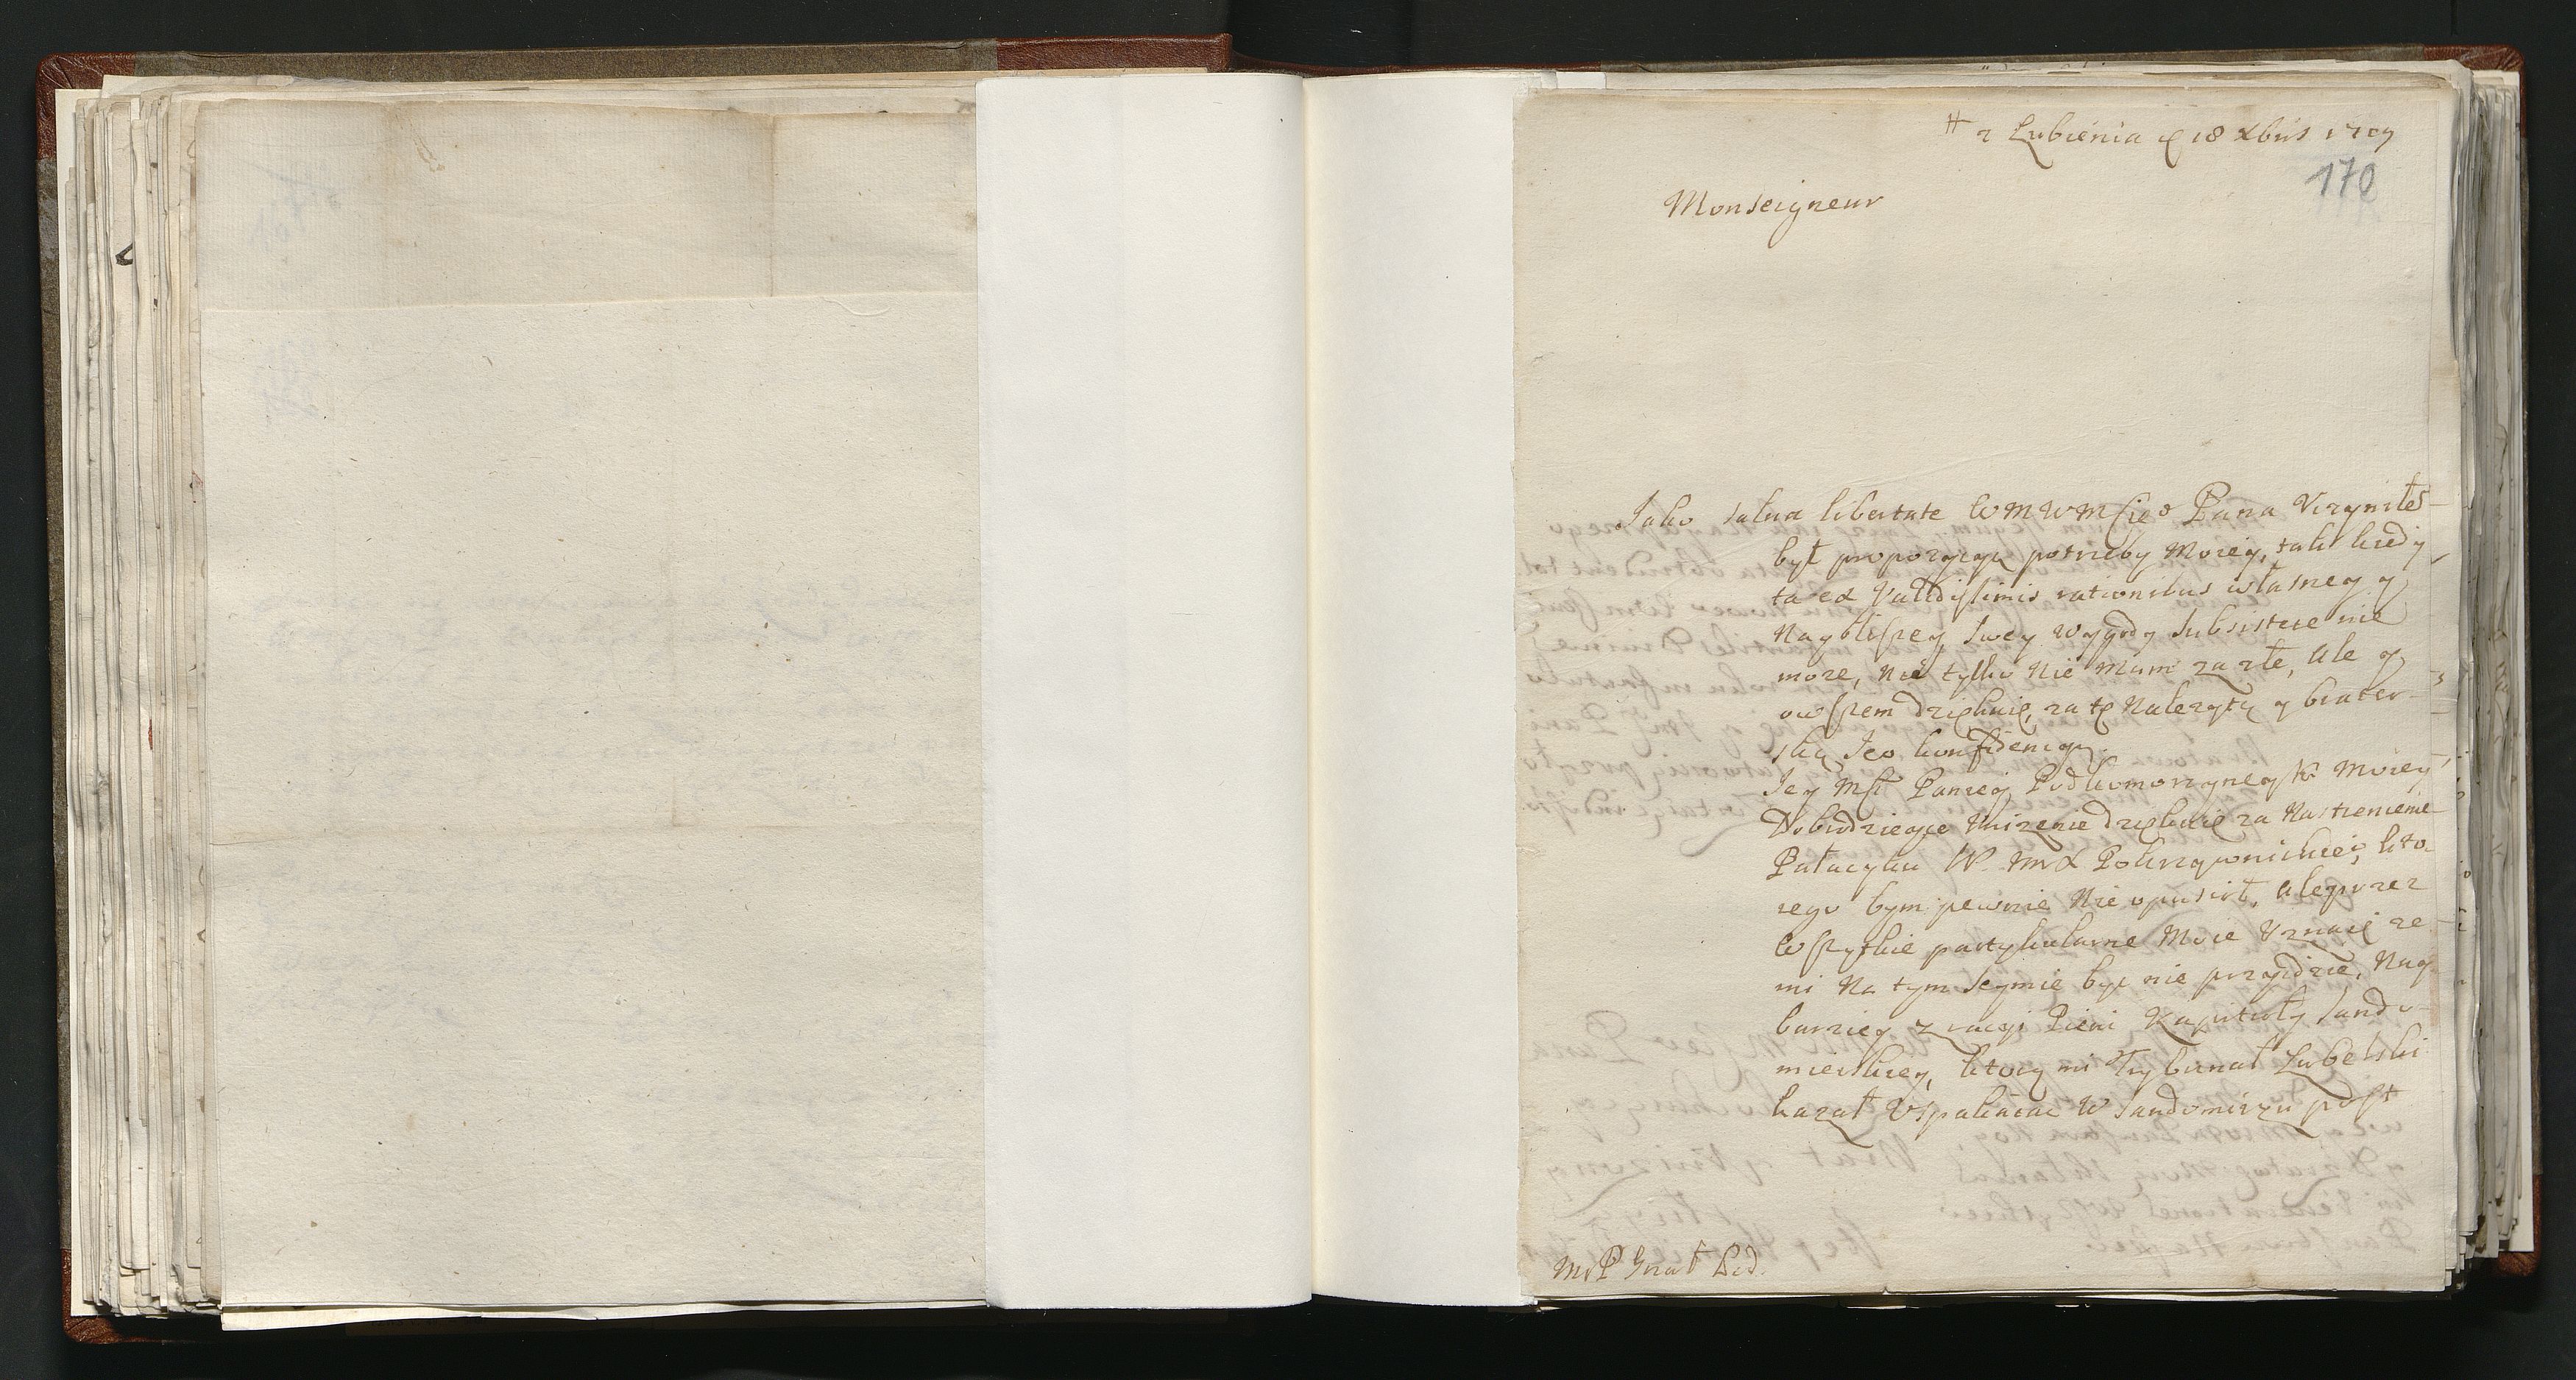 z Lubienia d 18 Xbris 1709
170
Monseigneur
Jako salua libertate WMWMſieo Pana Vczyniłeſ
był propozycyą potrzeby Moiey, tak kiedy
ta ex Validiſsimis rationibus własney y
Naybliſzey Swey Wygody Subsistere nie
moze, nie tylko Nie mam za złe, ale y
owſzem dziękuię, za tę Nalezytą y brater-
ską Jeo konfidencyą.
Jey Mſć Paniey Podkomorzyney K Moiey
Dobrodzieyce Vnizenie dziękuię za Nastręczenie
Pałacyku W. Pokrzywnickiei, kto-
rego bym pewnie Nie opuścił, ale przez
Wſzytkie partykularne Moie Vznaię ze
mi Na tym Seymie być nie przyidzie, Nay-
barziey z racyi Pieni Kapituły Sando-
mierskiey, ktorą mi Trybunał Lubelski
kazał Vspakaiac W Sandomirzu poſt
MP Gnał Lid.